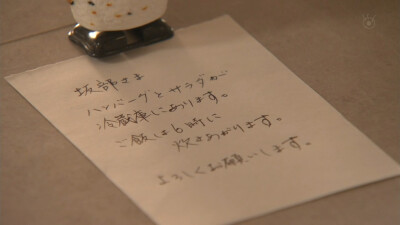 坂部さま
ハンバーグとサラダが
冷蔵庫にあります。
ご飯は6時に
炊きあがります。
よろしくお願いします。